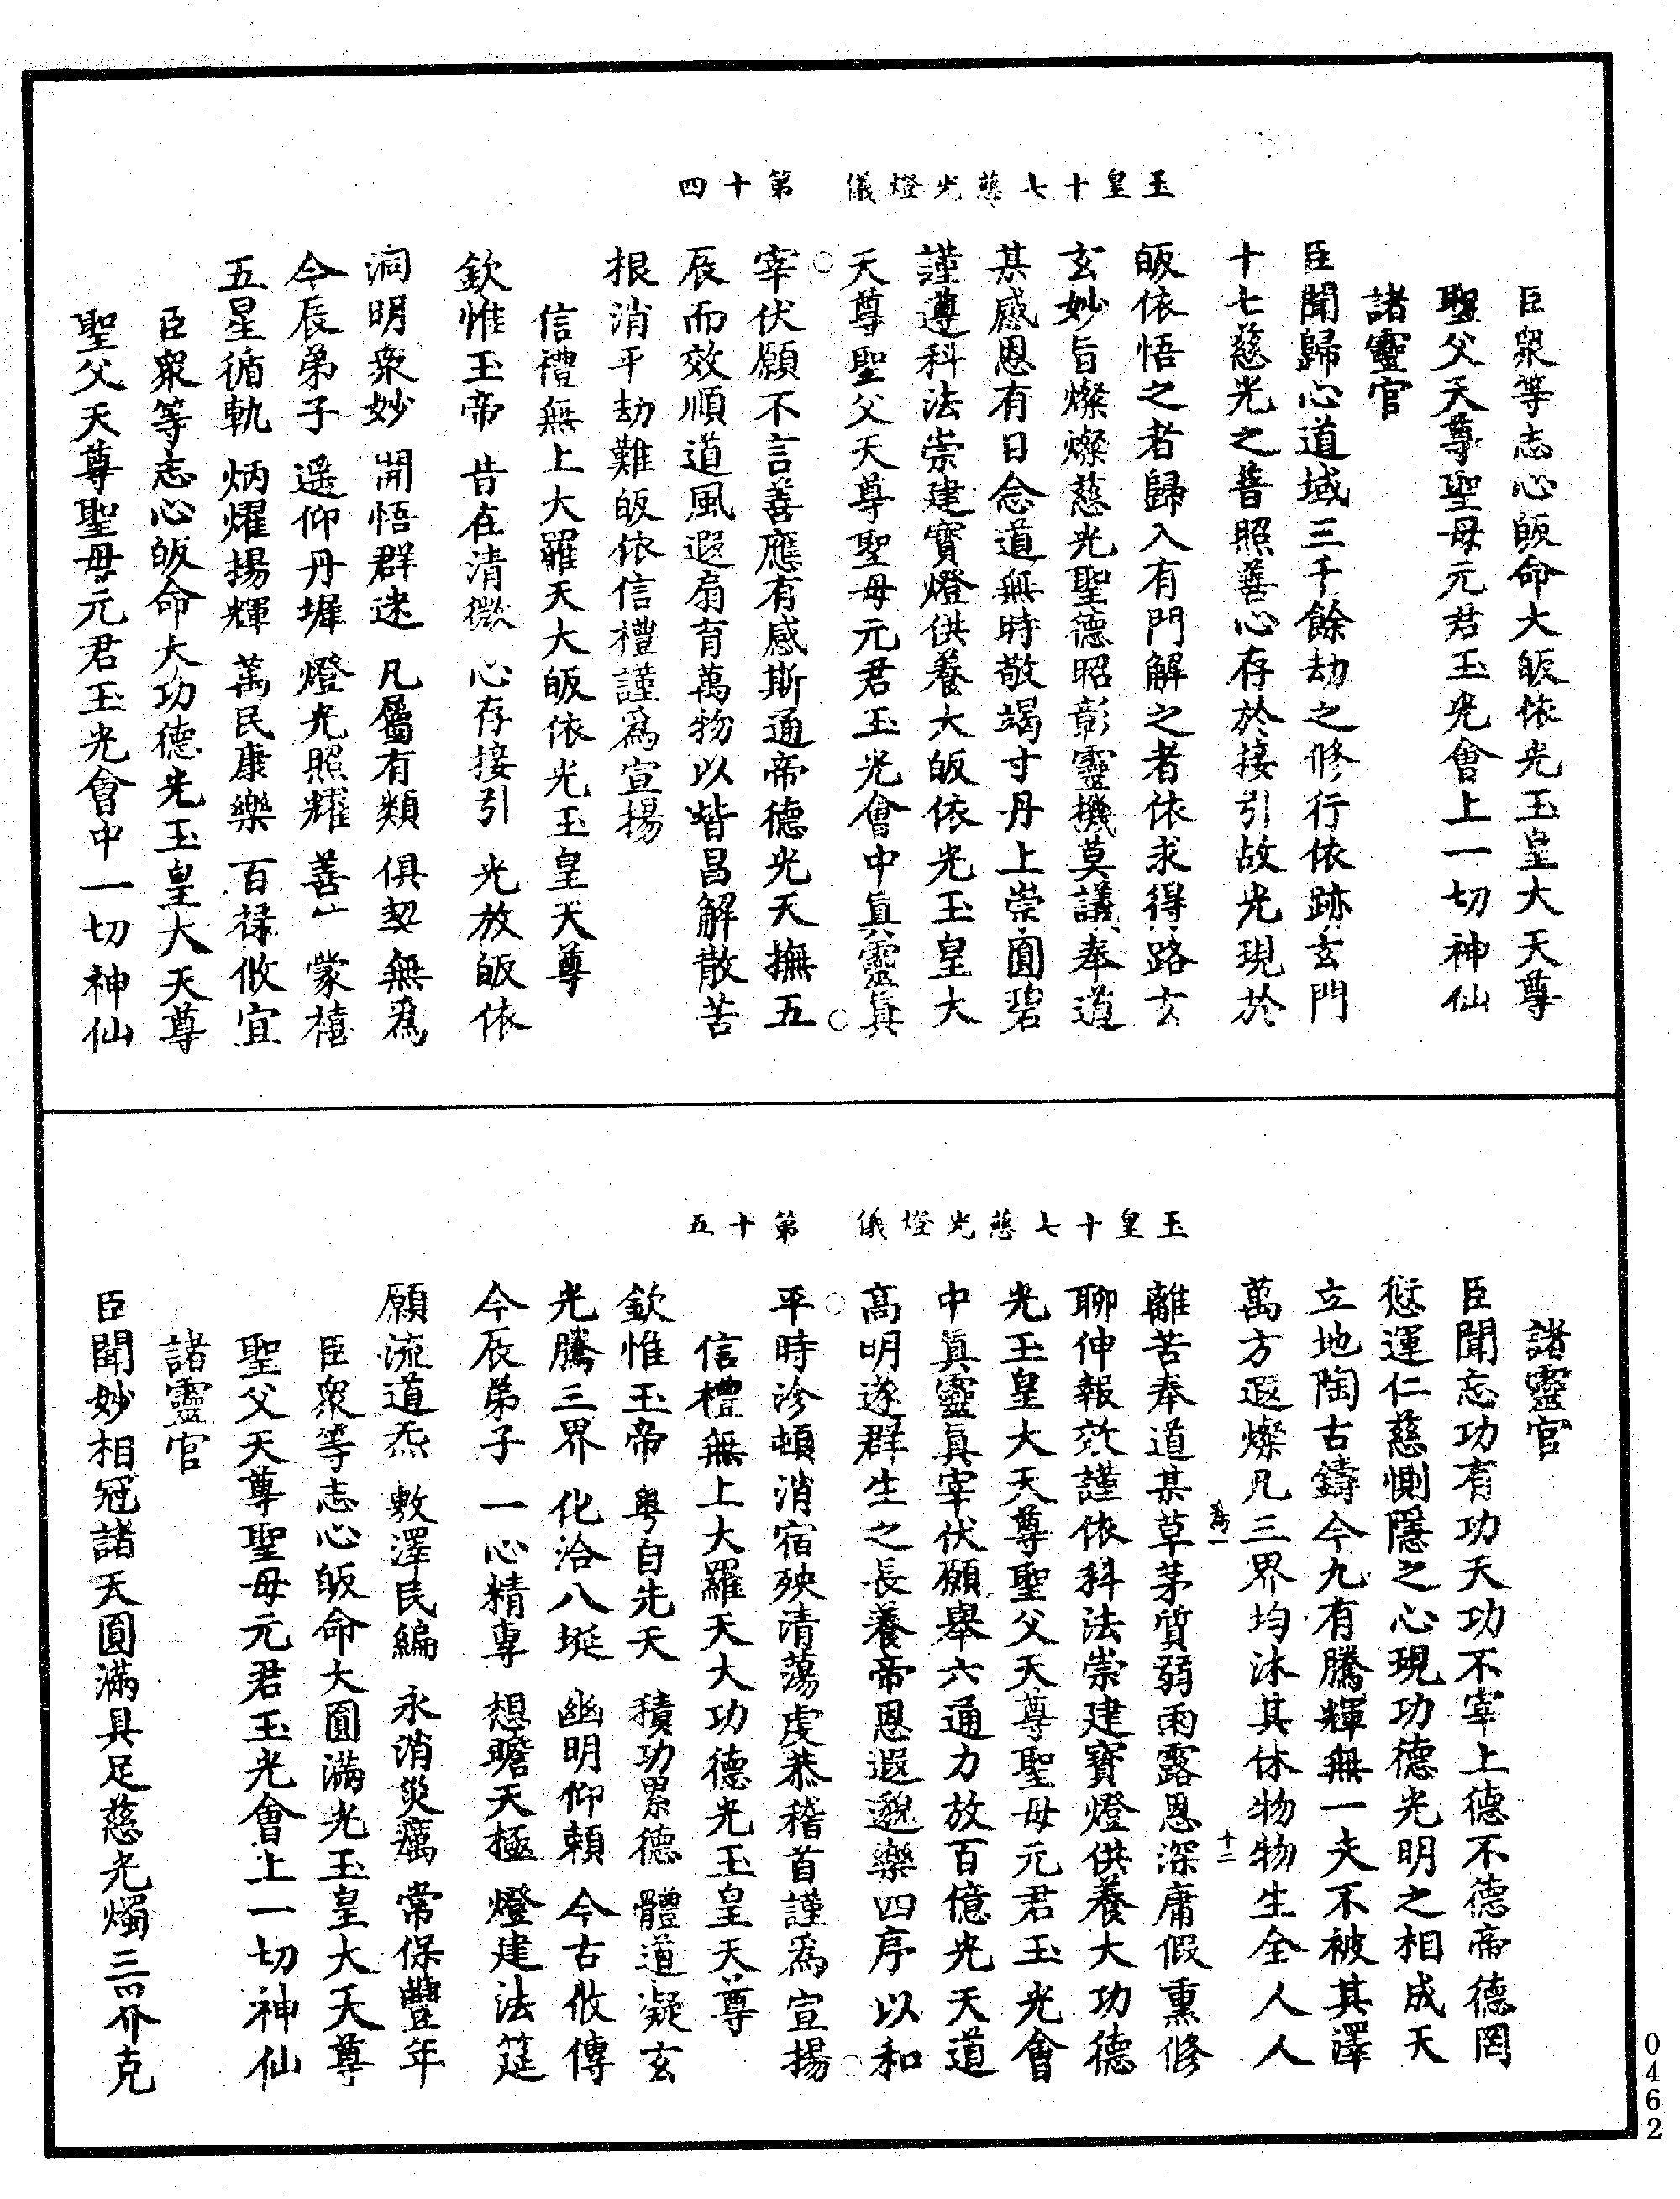 玉皇十七慈光燈儀　第十四
臣衆等志心皈命大皈依光玉皇大天尊
聖父天尊聖母元君玉光會上一切神仙
諸靈官
臣聞歸心道域三千餘劫之修行依跡玄門
十七慈光之普照善心存於接引故光現於
皈依悟之者歸入有門解之者依求得路玄
玄妙旨燦燦慈光聖德昭彰靈機莫議奉道
某感恩有日念道無時敬竭寸丹上崇圓碧
謹遵科法崇建寶燈供養大皈依光玉皇大
天尊聖父天尊聖母元君玉光會中眞靈眞
宰伏願不言善應有感斯通帝德光天撫五
辰而效順道風遐扇育萬物以皆昌解散苦
根消平劫難皈依信禮謹爲宣揚
信禮無上大羅天大皈依光玉皇天尊
欽惟玉帝　昔在清微　心存接引　光放皈依
洞明衆妙　開悟群迷　凡屬有類　俱契無爲
今辰弟子　遥仰丹墀　燈光照耀　善㆒蒙禧
五星循軌　炳燿揚輝　萬民康樂　百祿攸宜
臣衆等志心皈命大功德光玉皇大天尊
聖父天尊聖母元君玉光會中一切神仙
玉皇十七慈光燈儀　第十五
諸靈官
臣聞忘功有功天功不宰上德不德帝德罔
愆運仁慈惻隱之心現功德光明之相成天
立地陶古鑄今九有騰輝無一夫不被其澤
萬方遐燦凡三界均沐其休物物生全人人
離苦奉道某草茅質弱雨露恩深庸假熏修
聊伸報效謹依科法崇建寶燈供養大功德
光玉皇大天尊聖父天尊聖母元君玉光會
中眞靈眞宰伏願舉六通力放百億光天道
高明遂群生之長養帝恩遐邈樂四序以和
平時沴頓消宿殃清蕩虔恭稽首謹爲宣揚
信禮無上大羅天大功德光玉皇天尊
欽惟玉帝　粤自先天　積功累德　體道凝玄
光騰三界　化洽八埏　幽明仰賴　今古攸傳
今辰弟子　一心精専　想瞻天極　燈建法筵
願流道炁　敷澤民編　永消災癘　常保豐年
臣衆等志心皈命大圓滿光玉皇大天尊
聖父天尊聖母元君玉光會上一切神仙
諸靈官
臣聞妙相冠諸天圓滿具足慈光燭三界克
十二
0462